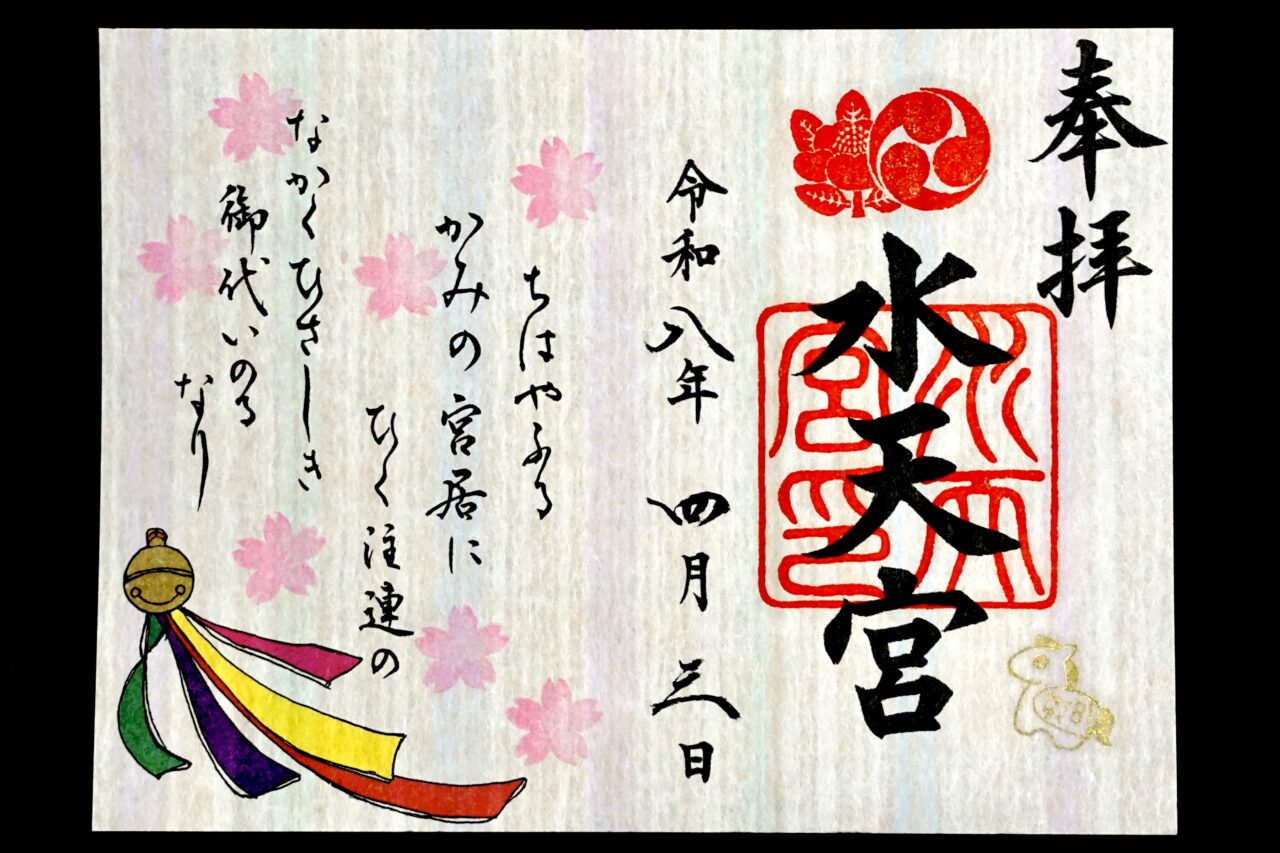 奉拝
水天宮
水天宮印
令和八年 四月 三日
ちはやふる
かみの宮居に
ひく注連の
なかくひさしき
御代いのる
なり